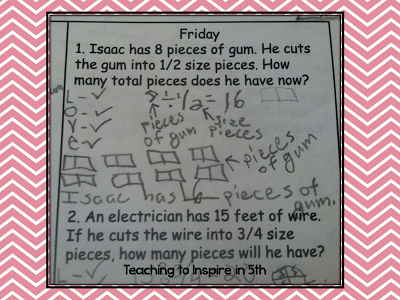 Friday
1. Isaac has 8 pieces of gum. He cuts
the gum into 1/2 size pieces. How
many total pieces does he have now?
L-✓
O-✓
V-✓
E-✓
8÷1/2=16
pieces of gum
size pieces
pieces of gum
Isaac has 16 pieces of gum.
2. An electrician has 15 feet of wire.
If he cuts the wire into 3/4 size
pieces, how many pieces will he have?
L-✓
Teaching to Inspire in 5th